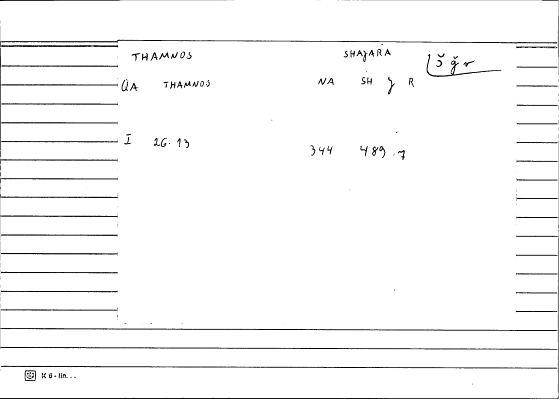 THAMNOS SHAJARA š ǧ r
QA THAMNOS NA SH J R
I 26.13 344 489.7
K 6 - lin...